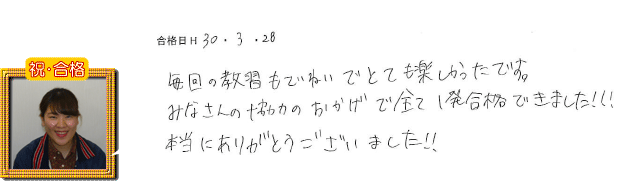 合格日H 30・3・28
祝・合格
毎回の教習もていねいでとても楽しかったです。
みなさんの協力のおかげで全て1発合格できました!!!
本当にありがとうございました!!